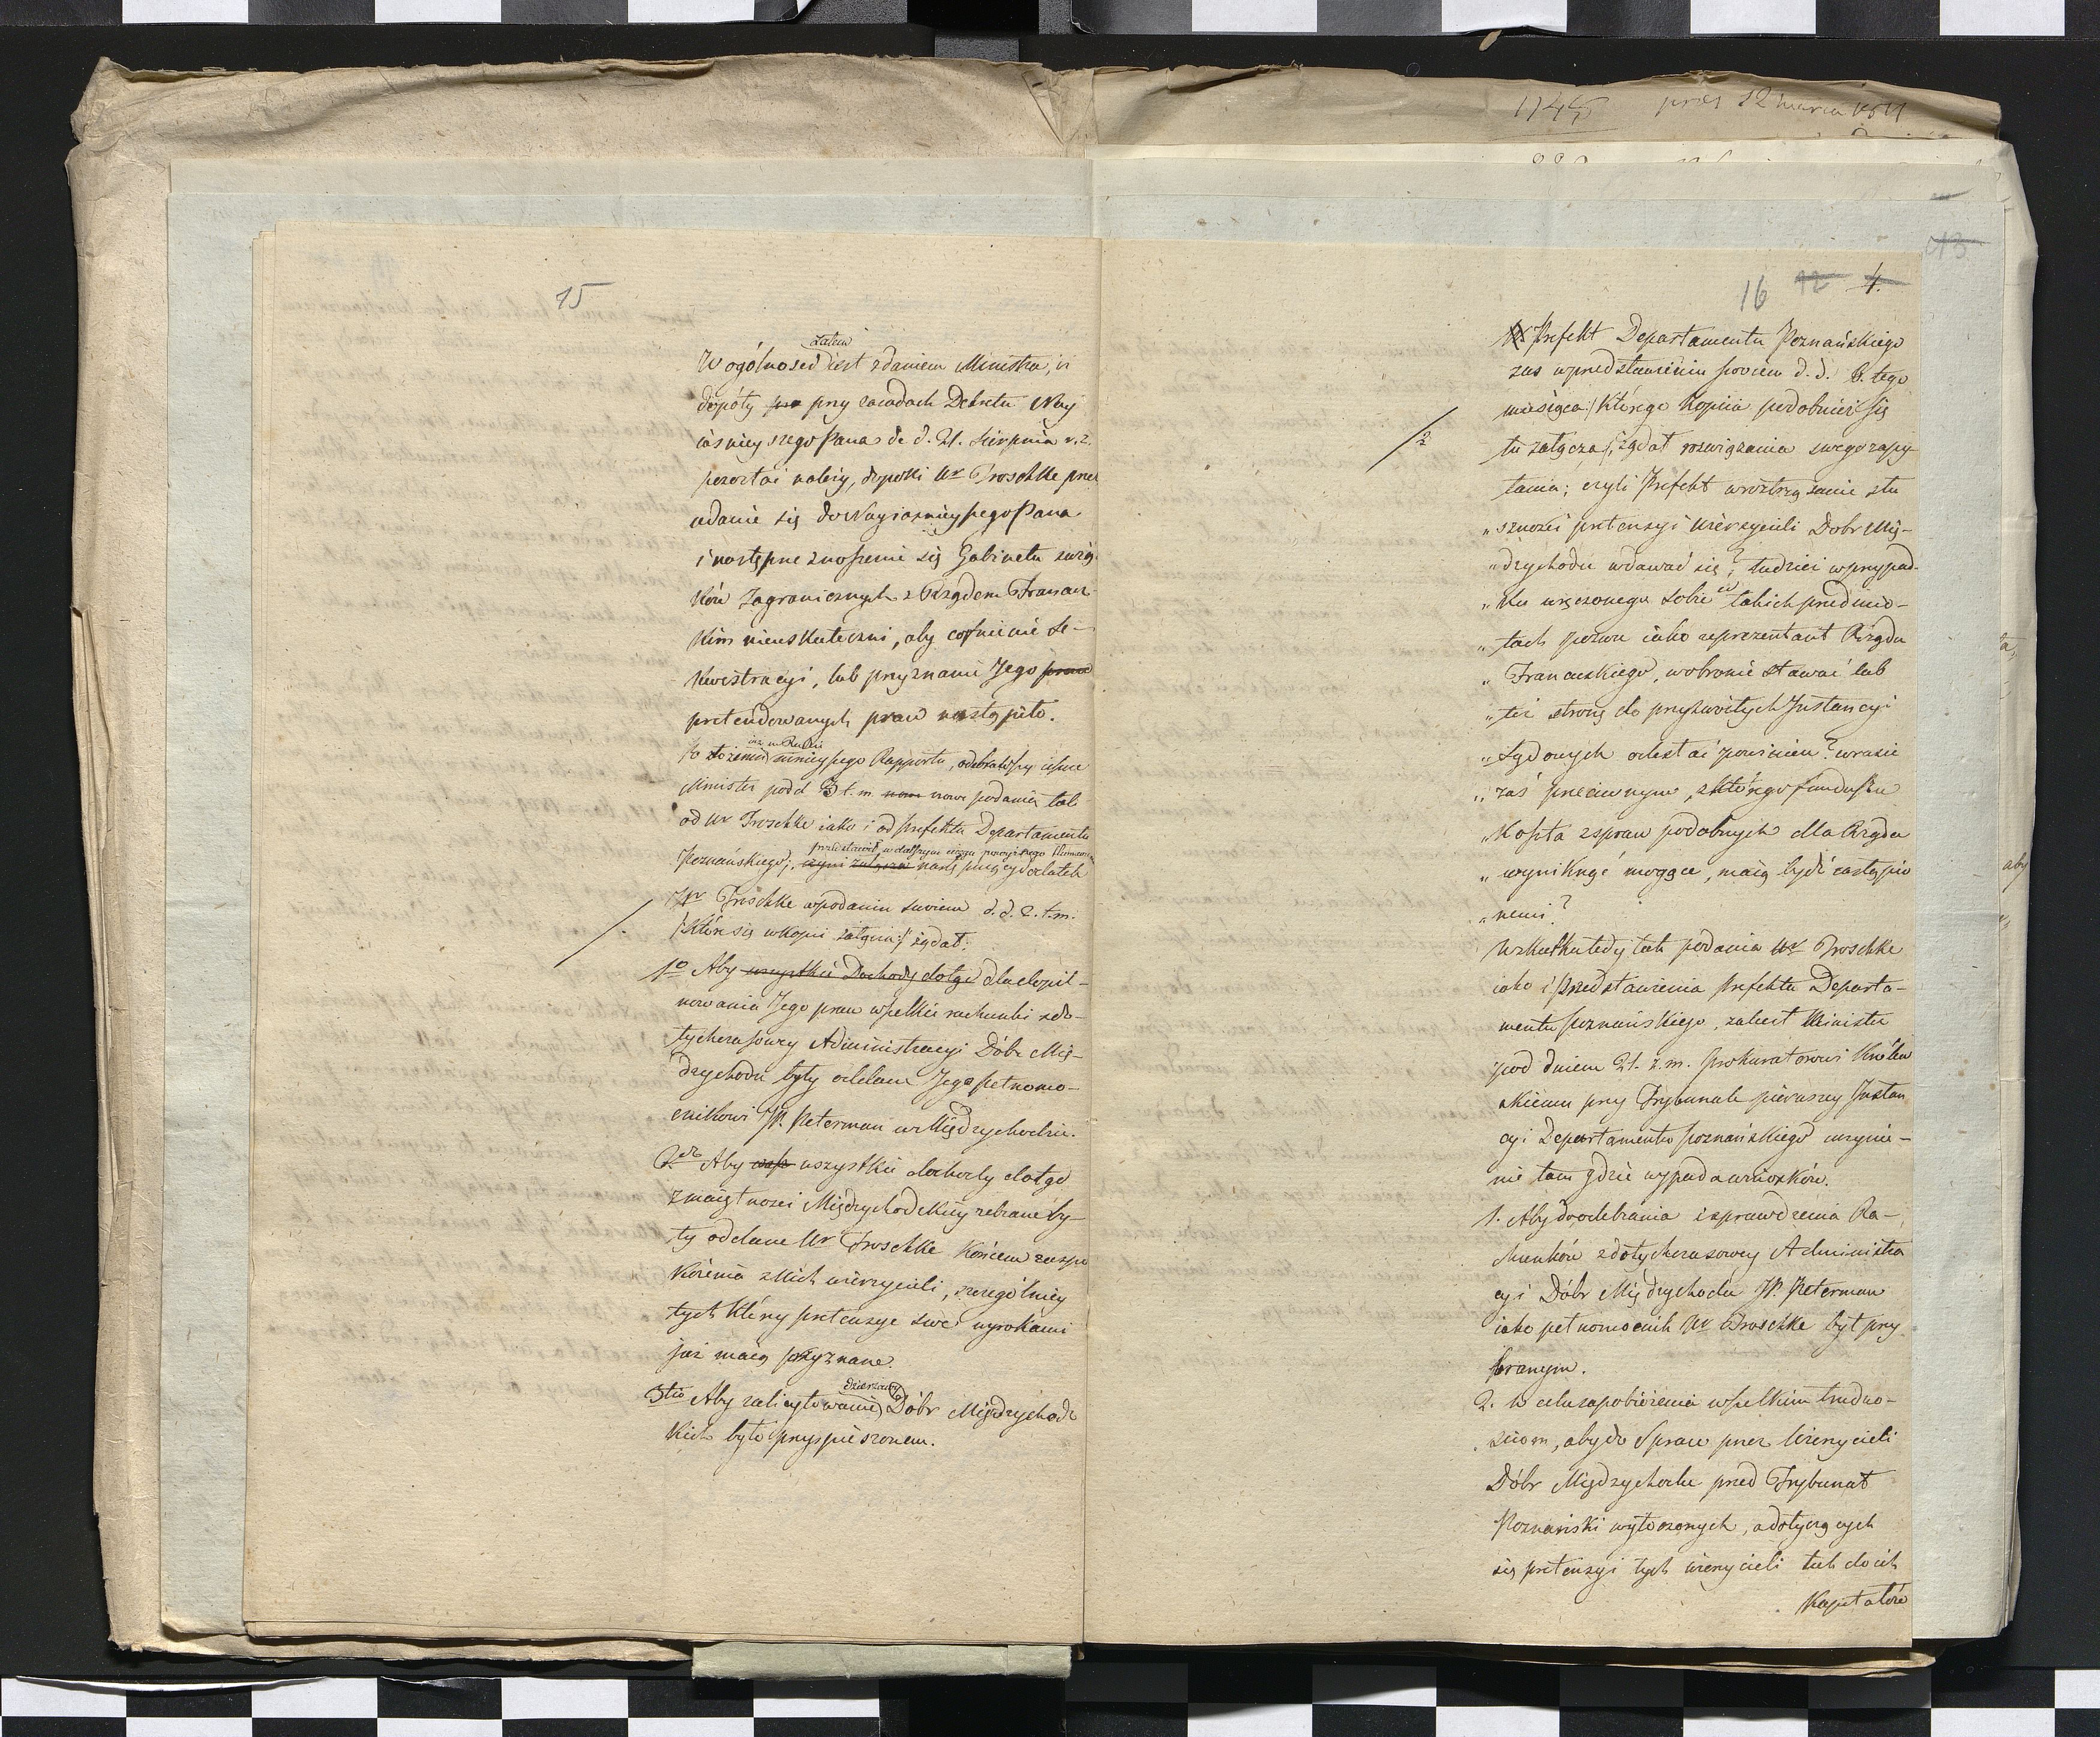 1745 prez 12 marca 1811
15
zatém
W ogólności iest zdaniem Ministra, iż
dopóty prz przy zasadach Dekretu Nay
iaśnieyszego Pana de d. 21. Sierpnia r. z.
pozostać należy, dopoki Ur Troschke przez
udanie się do Nayiaśnieyszego Pana
i następne znoszenie się Gabinetu zwią
ków Zagranicznych z Rządem Francuz
kim nieuskuteczni, aby cofnienie Se-
kwestracyi, lub przyznanie Jego praw
pretendowanych praw nastąpiło.
iuż w Radzie
Po złożeniu ninieyszego Rapportu, odebrawszy ieszcze
Minister pod d 3 t. m. now nowe podania tak
od Ur Troschke iako i od Prefekta Departamentu
przedstawić w dalszym ciągu powyższego
Poznańskiego; czyni załącza następuiący dodatek
Ur Troschke w podaniu swoiem d. d. 2. t. m.
/:które się w kopii załącza:/ żądał:
1o Aby wszystkie Dochody dotąd dla dopil-
nowania Jego praw wszelkie rachunki z do-
tychczasowey Administracyi Dóbr Mię-
dzychodu były oddane Jego pełnomo-
cnikowi JP. Peterman w Międzychodzie.
2do Aby wszys wszystkie dochody dotąd
z maiętności Międzychodzkiey zebrane by-
ły oddane Ur Troschke końcem zaspo
koienia z nich wierzycieli, szczególniey
tych którzy pretensye swe wyrokami
już maią przyznane.
dzierżawy
3tio Aby zalicytowanie Dóbr Międzychodz
kich było przyspieszonem.
13
16 12 4.
Prefekt Departamentu Poznańskiego
zaś w przedstawieniu swoiem d. d. 6. tego
miesiąca /:którego kopiia podobnież się
2
tu załącza:/ żądał rozwiązania swego zapy-
tania; czyli Prefekt w roztrząsanie słu
„szności pretensyi wierzycieli Dobr Mię-
„dzychodu wdawać się? tudzież w przypad-
„ku wręczonego sobie w takich przedmio-
„tach pozwu iako reprezentant Rządu
„Francuzkiego, w obronie stawać lub
„też stronę do przyzwoitych Instancyi
„Sądowych odesłać powinien? w razie
„zaś przeciwnym, z którego funduszu
„koszta z spraw podobnych dla Rządu
„wyniknąć mogące, maią bydź zastąpio
„nemi?
W skutku tedy tak podania Ur Troschke
iako i przedstawienia Prefekta Departa-
mentu Poznańskiego, zalecił Minister
pod dniem 21. z. m. Prokuratorowi Królew
skiemu przy Trybunale pierwszey Instan
cyi Departamentu Poznańskiego uczynie-
nie tam gdzie wypada wniosków.
1. Aby do odebrania i sprawdzenia Ra-
chunków z dotychczasowey Administra
cyi Dóbr Międzychodu JP. Peterman
iako pełnomocnik Ur Troschke był przy
branym.
2. W celu zapobieżenia wszelkim trudno-
ściom, aby do Spraw przez Wierzycieli
Dóbr Międzychodu przed Trybunał
Poznański wytoczonych, a dotyczących
się pretensyi tych wierzycieli tak do ich
Kapitałów
aby